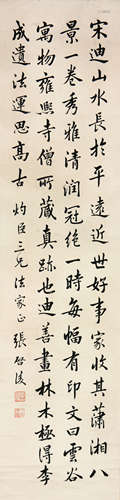 宋迪山水長於平遠近世好事家收其瀟湘八
景一卷秀雅清潤冠絕一時每幅有印文曰雲谷
寓物雍熙寺僧所藏真跡也迪善畫林木極得李
成遺法運思高古 灼臣三兄法家正 張啓後